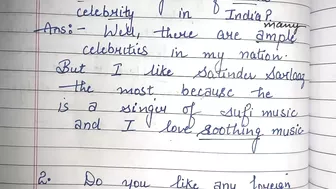 celebrity in India?
Ans:- Well, there are ample many
celebrities in my nation.
But I like Satinder Sartaaj
the most because he
is a singer of sufi music
and I love soothing music
2. Do you like any foreign